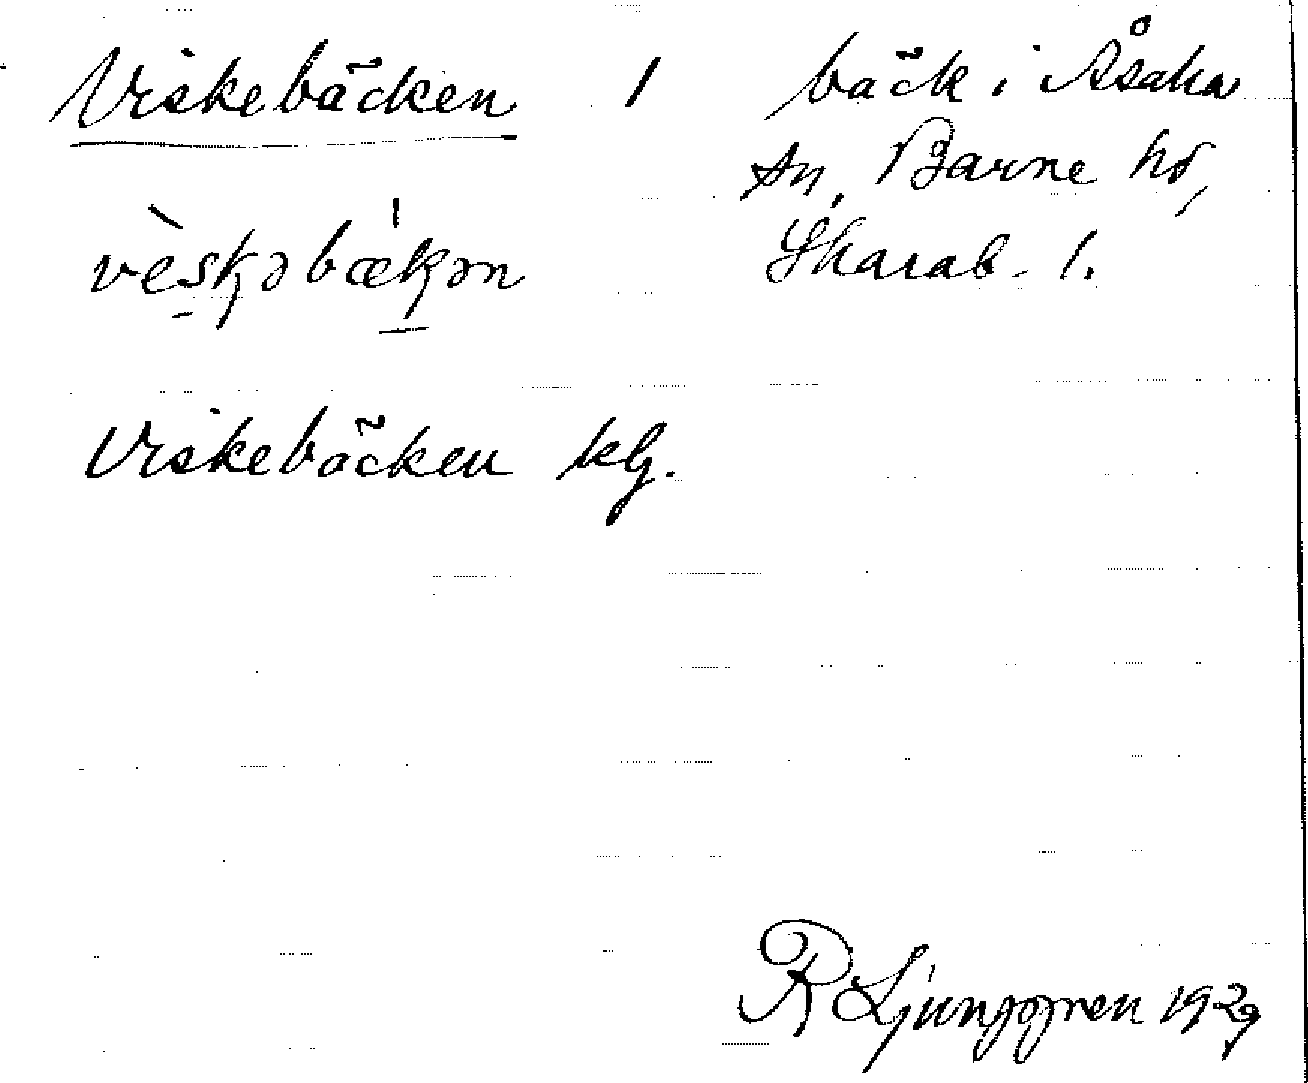 Viskebäcken 1 bäck i Åsaka
sn, Barne hd,
vèskəbækən Skarab. l.
Viskebäcken klg.
R Ljunggren 1929